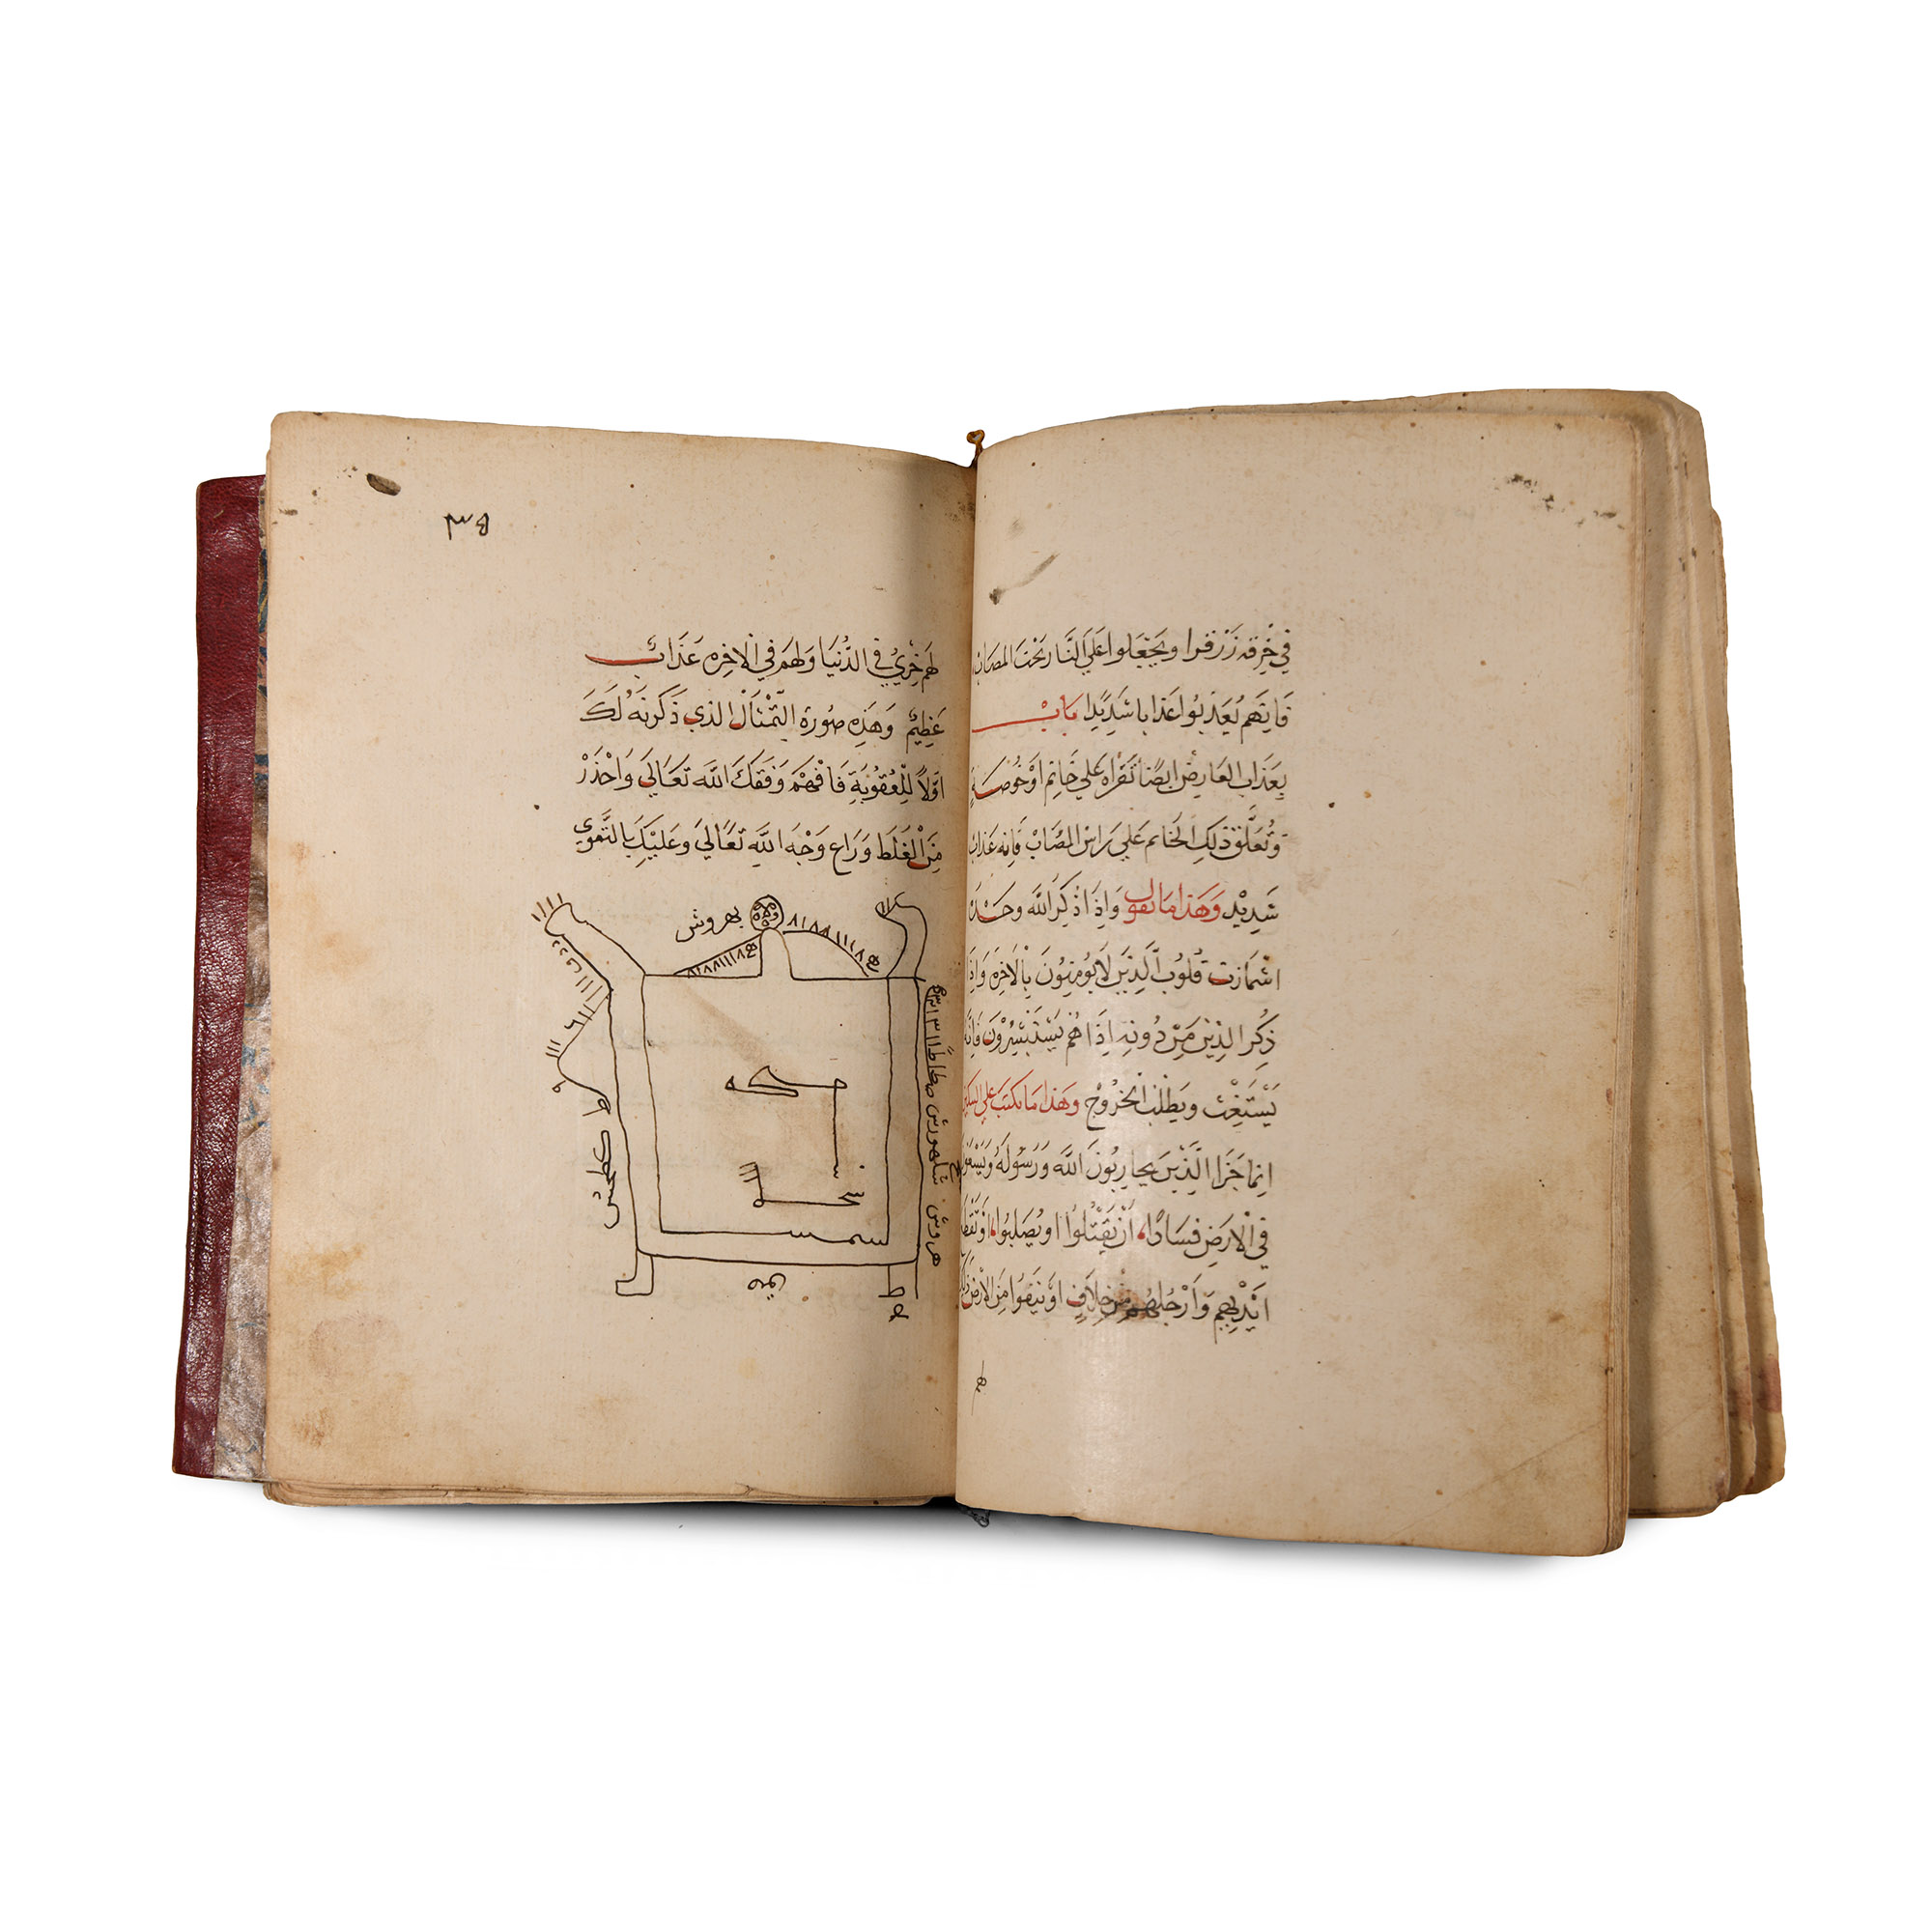 في خرقه زرقرا ويجعلوا علي النار تحت المصاب
فانهم يعذبوا عذابا شديدا باب
بعذاب العارض ايضا تقراه علي خاتم او خوصة
وتعلق ذلك الخاتم علي راس المصاب فانه عذاب
شديد وهذا ما تقول واذا ذكر الله وحده
اشمازت قلوب الذين لا يومنون بالاخره واذا
ذكر الذين من دونه اذا هم يستبشرون فانه
يستغيث ويطلب الخروج وهذا ما تكتب علي السكين
انما جزا الذين يحاربون الله ورسوله ويسعون
في الارض فسادا ان يقتلوا او يصلبوا او تقطع
ايديهم وارجلهم من خلاف او ينفوا من الارض ذلك
٣٤
لهم خزي في الدنيا ولهم في الاخره عذاب
عظيم وهذه صورة التمثال الذي ذكرته لك
اولا للعقوبة فافهم وفقك الله تعالي واحذر
من الغلط وراع وجه الله تعالي وعليك بالتقوي
بهروش